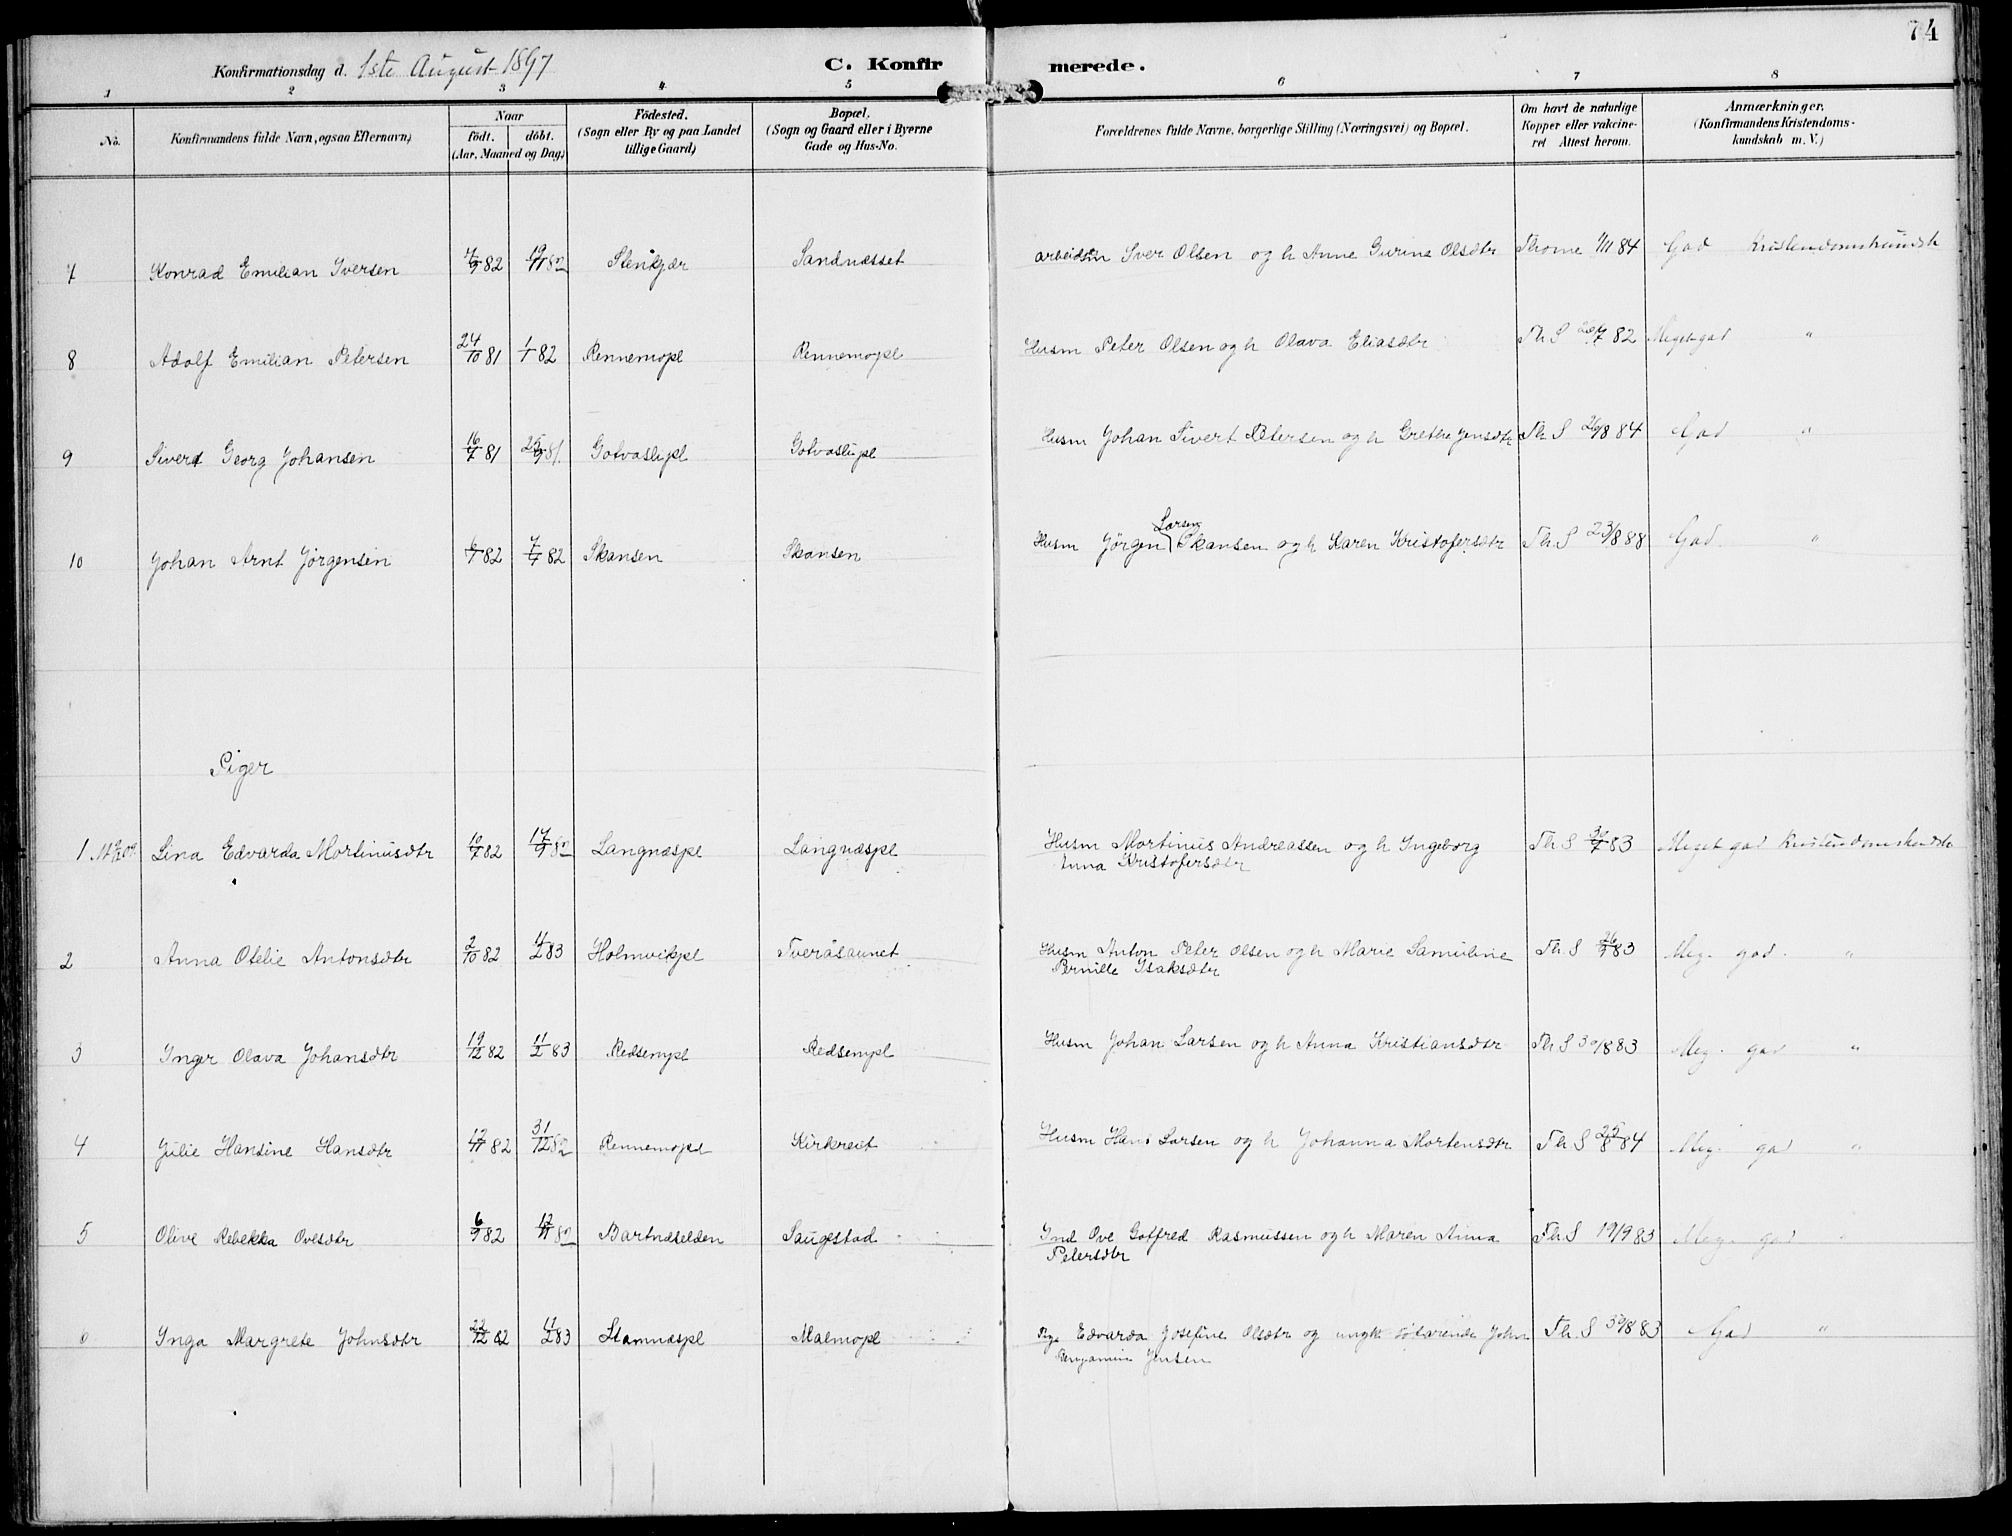 74
Konfirmationsdag d. 1ste August 1897 C. Konfir merede.
1 2 3 4 5 6 7 8
No. Konfirmandens fulde Navn, ogsaa Efternavn) Naar födt. döbt. (Aar, Maaned og Dag) Födested. (Sogn eller By og paa Landet tillige Gaard) Bopæl. (Sogn og Gaard eller i Byerne Gade og Hus-No. Forældrenes fulde Navne, borgerlige Stilling (Næringsvei) og Bopæl. Om havt de naturlige Kopper eller vakcineret Attest herom. Anmærkninger. (Konfirmandens Kristendomskundskab m. V.)
7 Konrad Emilian Iversen 4/9 82 19/11 82 Stenkjær Sandnesset arbeider Iver Olsen og h Anne Gurine Olsdtr Thorne 1/11 84 God Kristendomskundsk
8 Adolf Emilian Petersen 24/10 81 1/1 82 Rennemopl Rennemopl Husm Peter Olsen og h Olava Eliasdtr Th S 7 82 Meget god "
9 Sivert Georg Johansen 16/7 81 25/9 81. Gotvaslipl Gotvaslipl Husm Johan Sivert Petersen og h Grethe Jensdtr Th S 26/8 84 God "
10 Johan Arnt Jörgensen 6/1 82 82 Skansen Skansen Husm Jörgen Larsen Skansen og h Karen Kristofersdtr Th. S 23/8 88 God "
Piger
1 Lina Edvarda Mortinusdtr 10/7 82 17/9 82 Langnæspl Langnæspl Husm Mortinus Andreassen og h Ingeborg
Anna Kristofersdtr Th S 7 83 Meget god Kristendomskundsk
2 Anna Otelie Antonsdtr 2/10 82 4/2 83 Holmvikpl Tveråsaunet Husm Anton Peter Olsen og h Marie Samuline
Pernille Isaksdtr Th. S 83 Meg. god. "
3 Inger Olava Johansdtr 19/12 82 11/2 83 Redsempl Redsempl Husm Johan Larsen og h Anna Kristiansdtr Th S 30/8 83 Meg. god "
4 Julie Hansine Hansdtr 12/11 82 31/12 82 Rennemopl Kirkereit Husm Hans Larsen og h Johanna Mortensdtr Th. S 25/8 84 Meg. god "
5 Olive Rebekka Ovesdtr 6/9 82 12/11 82 Bartnæselden Saugestad Ind Ove Gotfred Rasmussen og h Maren Anna
Petersdtr Th S 19/9 83 Meg. god "
6 Inga Margrete Johnsdtr 22/12 82 11/2 83 Stamnæspl Malmopl Pige Edvarda Josefine Olsdtr og ungk söfarende John
Benjamin Jensen Th. S 30/8 83 God "